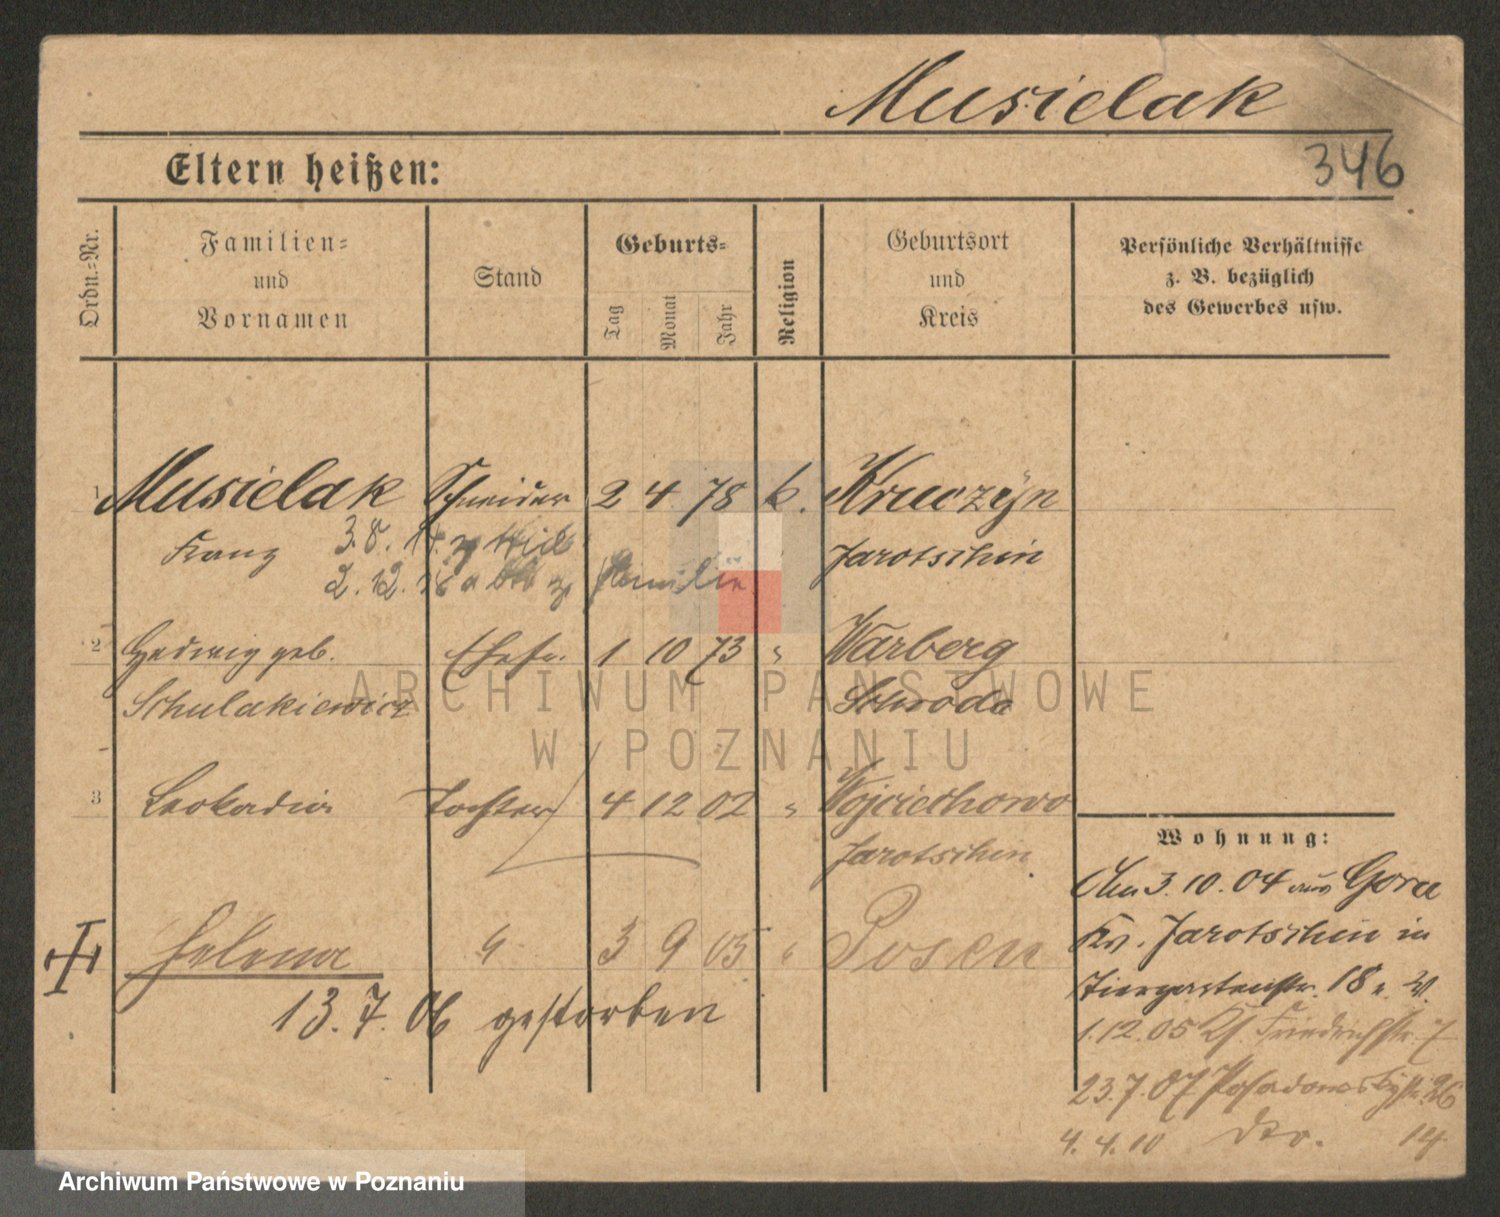 Musielak
Eltern heißen:
346
Ordn.=Nr.
Familien=
und
Vornamen
Stand
Geburts=
Tag
Monat
Jahr
Religion
Geburtsort
und
Kreis
Persönliche Verhältnisse
z. B. bezüglich
des Gewerbes usw.
1 Musielak Schneider 2 4 78 k. Kruczyn
Franz 3.8.14 z Jarotschin
2.12.18 z Familie
2 Hedwig geb. Ehefr. 1 10 73 " Warberg
Schulakiewicz Schroda
3 Leokadia Tochter 4 12 02 " Wojciechowo
Jarotschin
Helena " 3 9 05 " Posen
13.7.06 gestorben
Wohnung:
Am 3.10.04 aus Gora
Kr. Jarotschin in
Tiergartenstr. 18 b. W.
1.12.05 Friedrichstr. 7
23.7.07 Posadowskystr. 26
4.4.10 dto. 14
ARCHIWUM PAŃSTWOWE
W POZNANIU
Archiwum Państwowe w Poznaniu